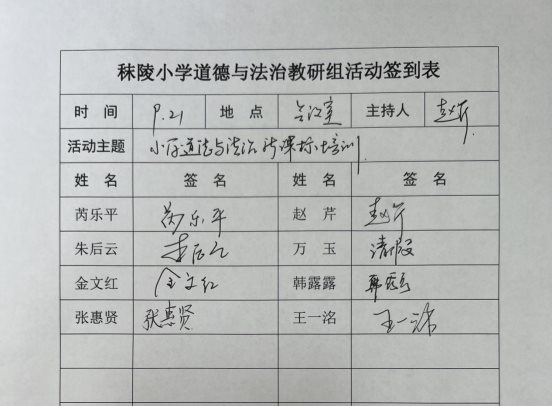 秣陵小学道德与法治教研组活动签到表
时 间 9.21 地 点 会议室 主持人 赵芹
活动主题 小学道法与法治新课标培训
姓 名 签 名 姓 名 签 名
芮乐平 芮乐平 赵 芹 赵芹
朱后云 朱后云 万 玉 请假
金文红 金文红 韩露露 韩露露
张惠贤 张惠贤 王一洺 王一洺